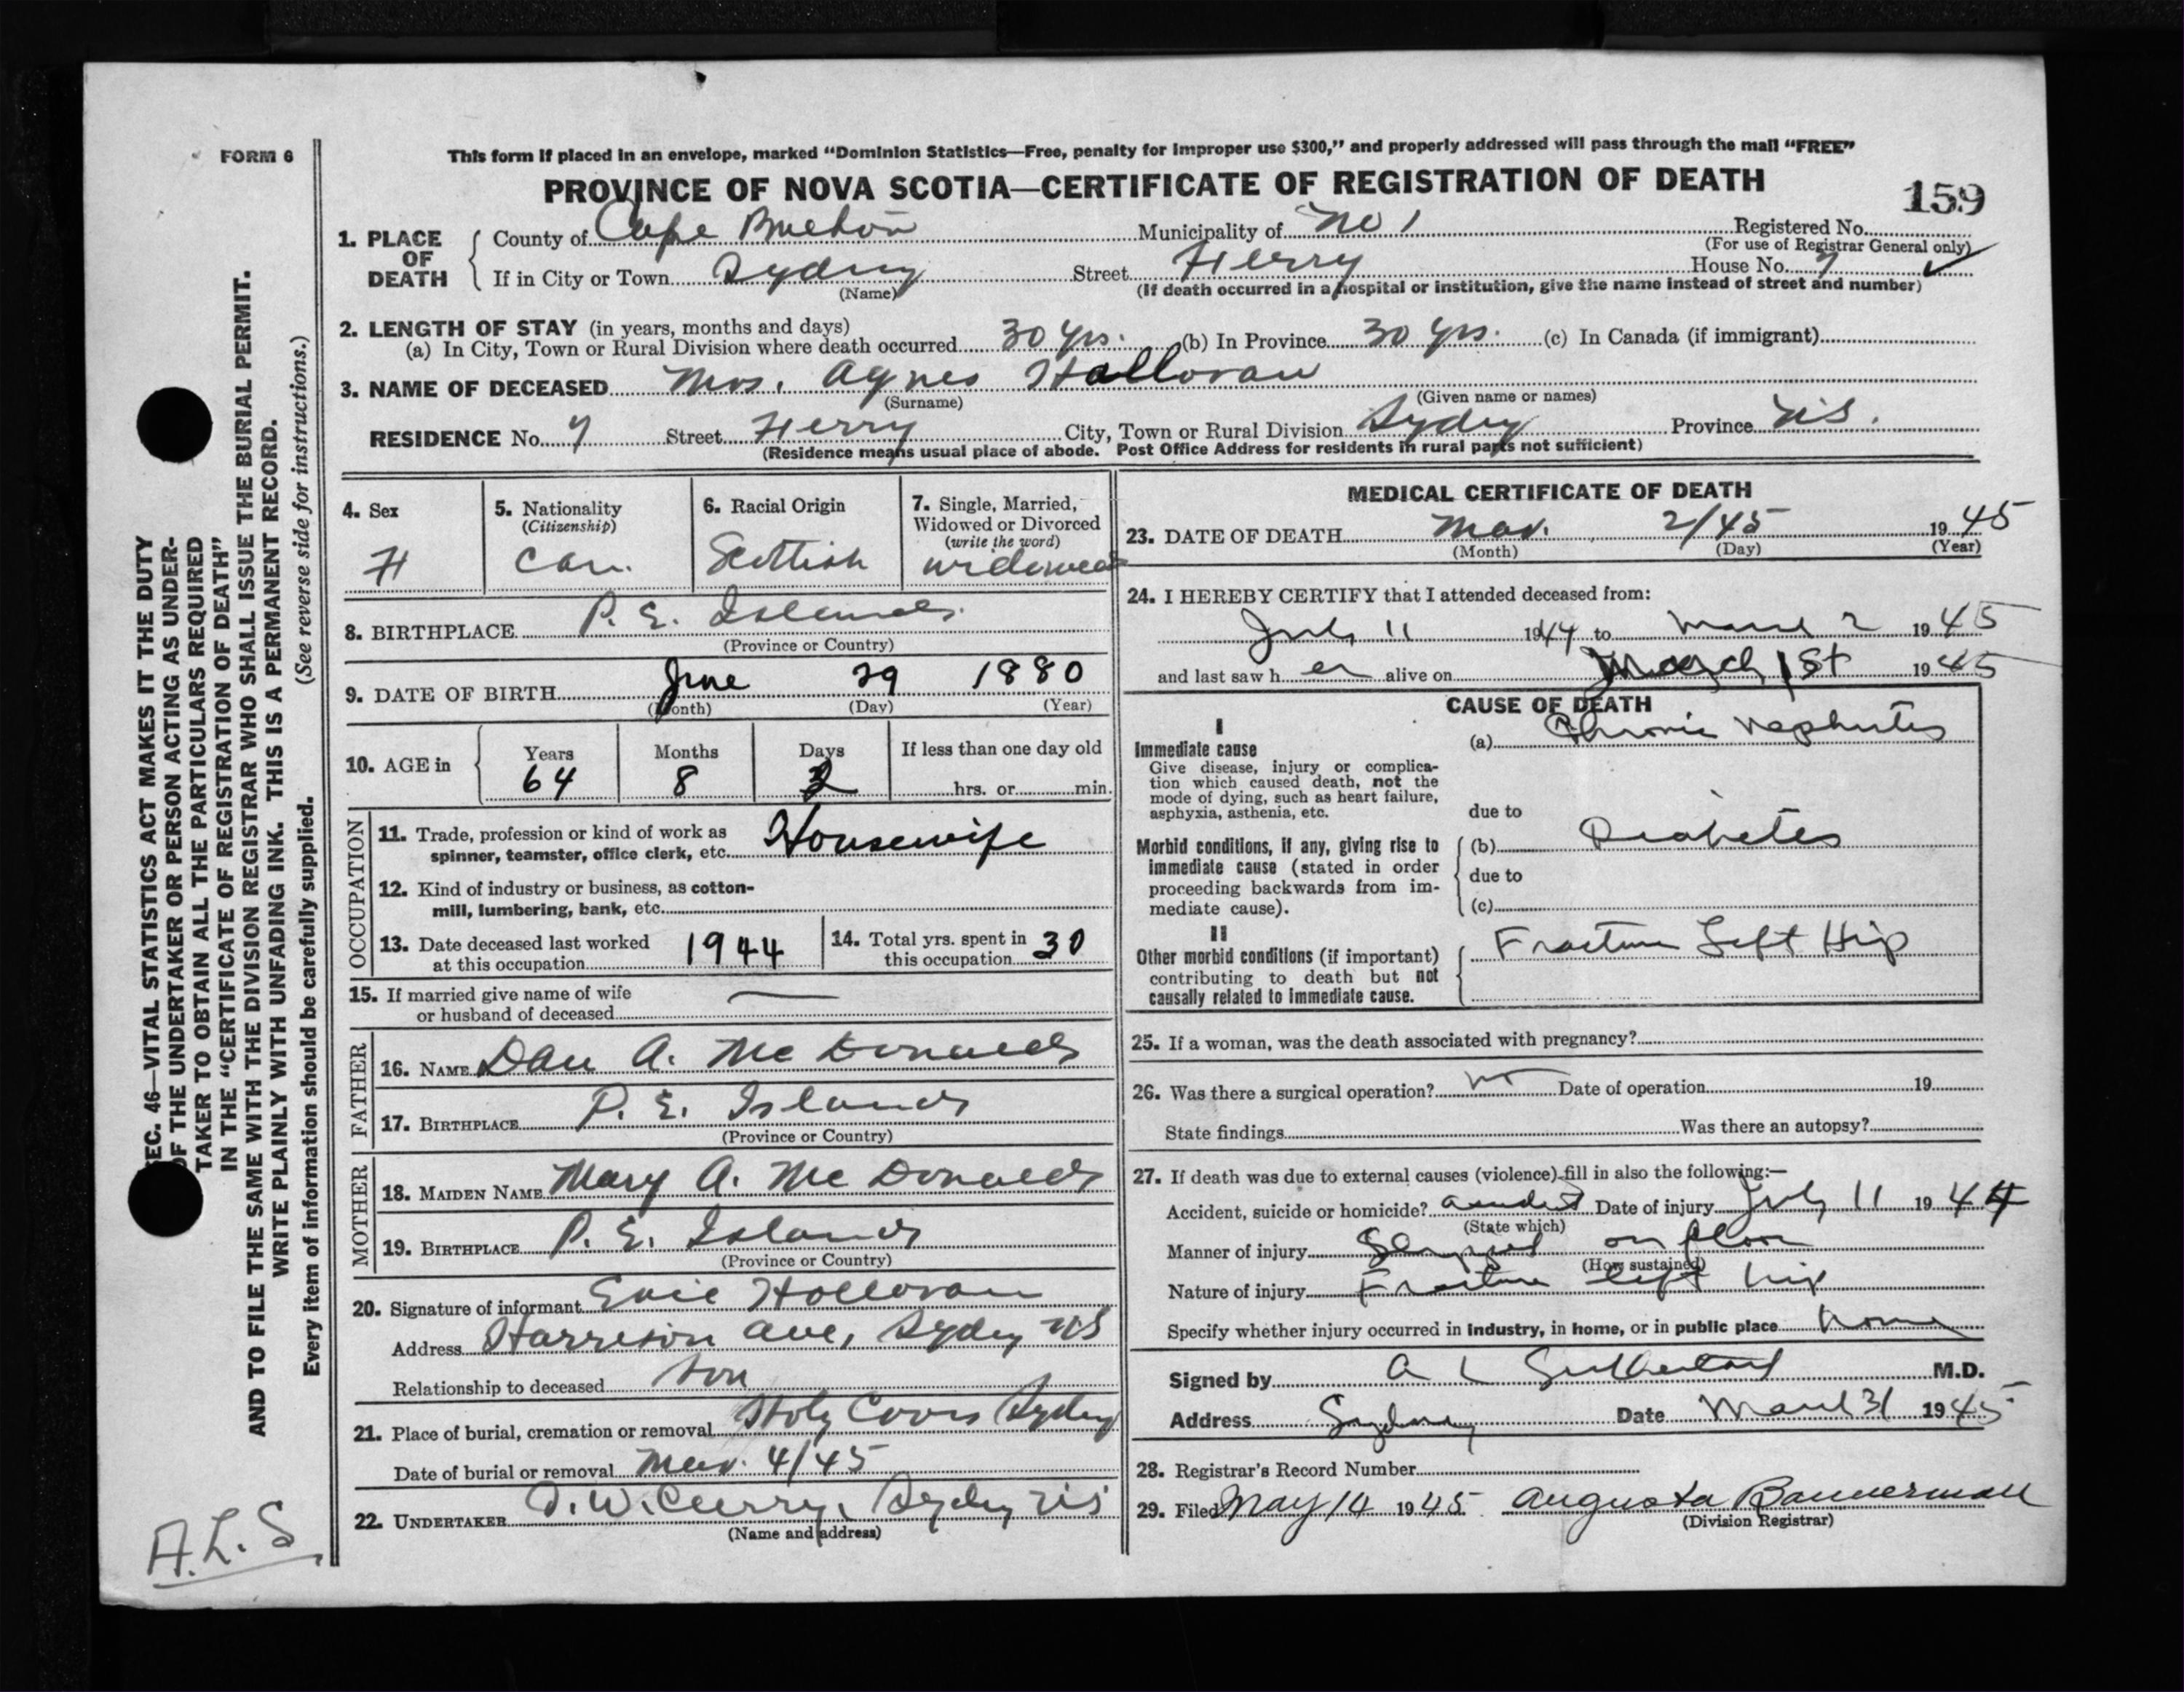 FORM 6
This form if placed in an envelope, marked “Dominion Statistics—Free, penalty for improper use $300,” and properly addressed will pass through the mail “FREE”
PROVINCE OF NOVA SCOTIA—CERTIFICATE OF REGISTRATION OF DEATH
159
1. PLACE OF DEATH
County of Cape Breton Municipality of No 1 Registered No.
(For use of Registrar General only)
If in City or Town Sydney Street Ferry House No. 7 ✓
(Name) (If death occurred in a hospital or institution, give the name instead of street and number)
2. LENGTH OF STAY (in years, months and days)
(a) In City, Town or Rural Division where death occurred 30 yrs. (b) In Province 30 yrs. (c) In Canada (if immigrant)
3. NAME OF DECEASED Mrs. Agnes Halloran
(Surname) (Given name or names)
RESIDENCE No. 7 Street Ferry City, Town or Rural Division Sydney Province N.S.
(Residence means usual place of abode. Post Office Address for residents in rural parts not sufficient)
4. Sex
F
5. Nationality
(Citizenship)
Can.
6. Racial Origin
Scottish
7. Single, Married,
Widowed or Divorced
(write the word)
widowed
8. BIRTHPLACE P. E. Island
(Province or Country)
9. DATE OF BIRTH June 29 1880
(Month) (Day) (Year)
10. AGE in
Years Months Days If less than one day old
64 8 hrs. or min.
OCCUPATION
11. Trade, profession or kind of work as
spinner, teamster, office clerk, etc. Housewife
12. Kind of industry or business, as cotton-
mill, lumbering, bank, etc.
13. Date deceased last worked
at this occupation 1944
14. Total yrs. spent in
this occupation 30
15. If married give name of wife
or husband of deceased —
FATHER
16. NAME Dan A. McDonald
17. BIRTHPLACE P. E. Island
(Province or Country)
MOTHER
18. MAIDEN NAME Mary A. McDonald
19. BIRTHPLACE P. E. Island
(Province or Country)
20. Signature of informant Halloran
Address Harrison Ave, Sydney NS
Relationship to deceased son
21. Place of burial, cremation or removal Holy Cross Sydney
Date of burial or removal Mar. 4/45
22. UNDERTAKER W. Curry, Sydney NS
(Name and address)
MEDICAL CERTIFICATE OF DEATH
23. DATE OF DEATH Mar. 2/45 1945
(Month) (Day) (Year)
24. I HEREBY CERTIFY that I attended deceased from:
July 11 1944 to March 2 1945
and last saw her alive on March 1st 1945
CAUSE OF DEATH
I
Immediate cause
Give disease, injury or complica-
tion which caused death, not the
mode of dying, such as heart failure,
asphyxia, asthenia, etc.
(a) Chronic Nephritis
due to
Morbid conditions, if any, giving rise to
immediate cause (stated in order
proceeding backwards from im-
mediate cause).
(b) Diabetes
due to
(c)
II
Other morbid conditions (if important)
contributing to death but not
causally related to immediate cause.
Fracture Left Hip
25. If a woman, was the death associated with pregnancy?
26. Was there a surgical operation? no Date of operation 19
State findings Was there an autopsy?
27. If death was due to external causes (violence) fill in also the following:—
Accident, suicide or homicide? accident Date of injury July 11 1944
(State which)
Manner of injury Slipped on floor
(How sustained)
Nature of injury Fracture left hip
Specify whether injury occurred in industry, in home, or in public place home
Signed by A L Sutherland M.D.
Address Sydney Date March 31 1945
28. Registrar's Record Number
29. Filed May 14 1945 Augusta Bannerman
(Division Registrar)
SEC. 46—VITAL STATISTICS ACT MAKES IT THE DUTY
OF THE UNDERTAKER OR PERSON ACTING AS UNDER-
TAKER TO OBTAIN ALL THE PARTICULARS REQUIRED
IN THE “CERTIFICATE OF REGISTRATION OF DEATH”
AND TO FILE THE SAME WITH THE DIVISION REGISTRAR WHO SHALL ISSUE THE BURIAL PERMIT.
WRITE PLAINLY WITH UNFADING INK. THIS IS A PERMANENT RECORD.
Every item of information should be carefully supplied. (See reverse side for instructions.)
A.L.S.